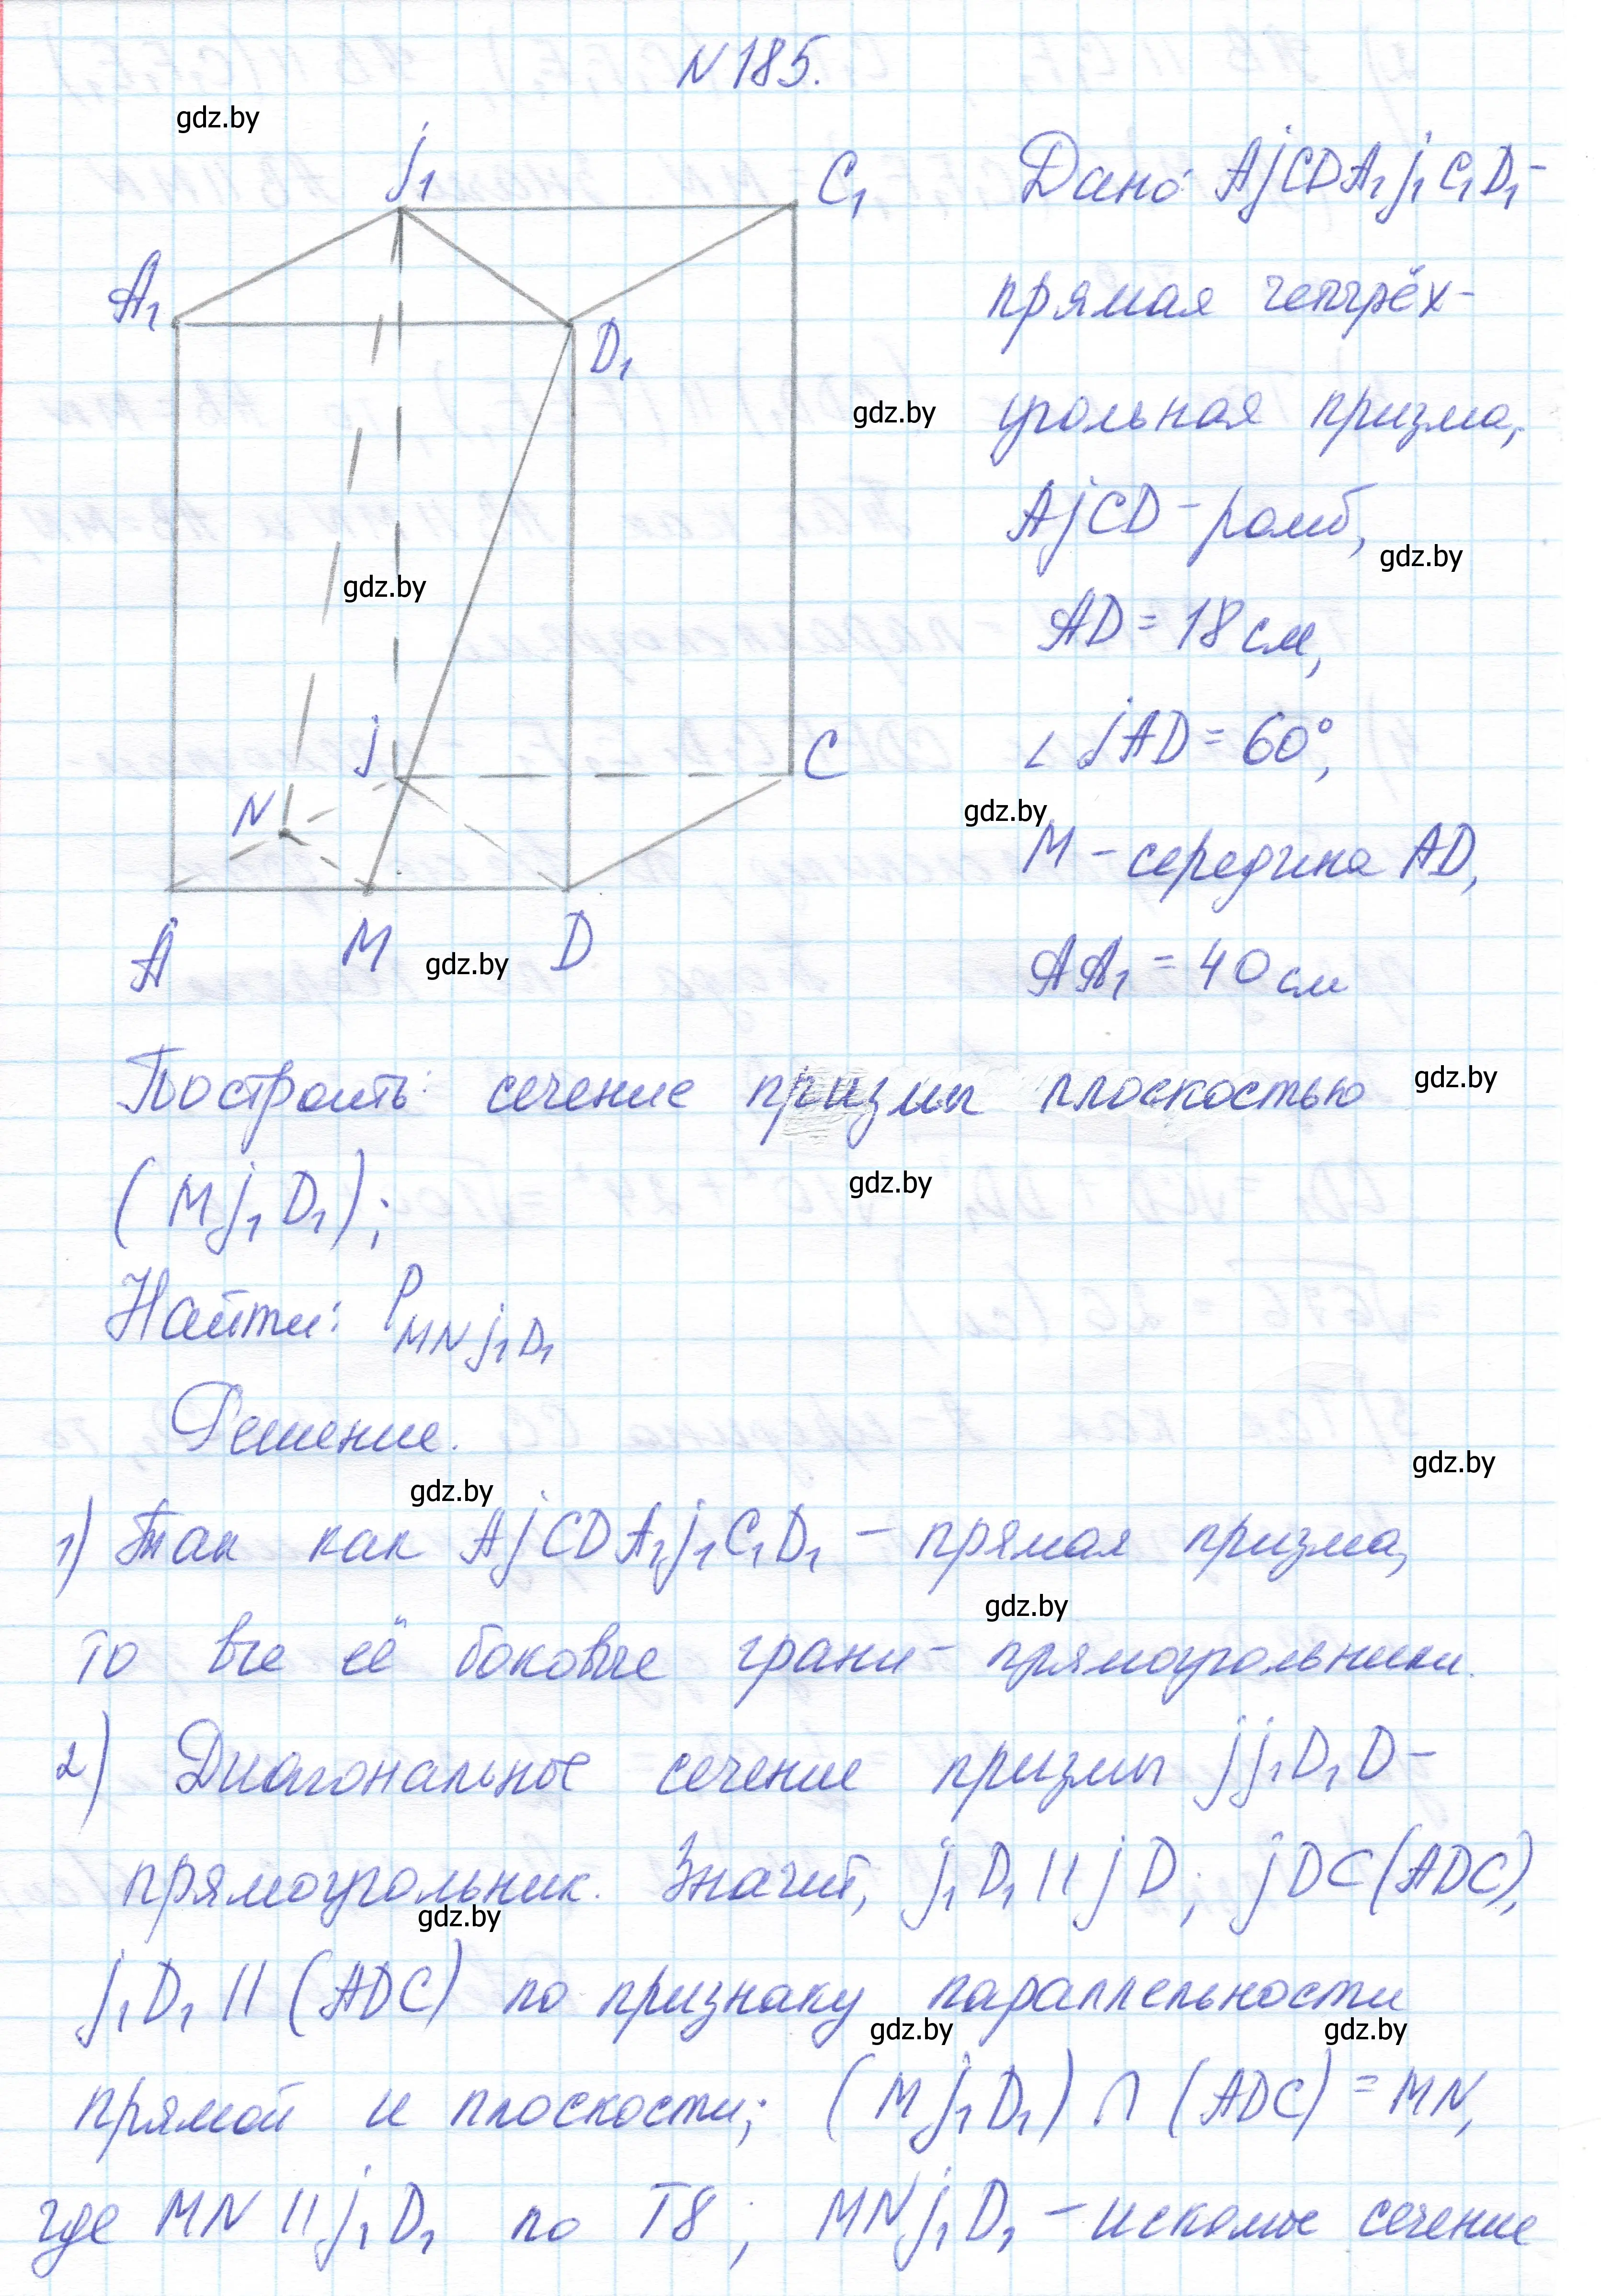 N 185.
gdz.by
j₁
C₁
A₁
D₁
gdz.by
j
C
N
A
M
D
gdz.by
Дано: AjCDA₁j₁C₁D₁-
прямая четырёх-
gdz.by
угольная призма,
AjCD - ромб,
gdz.by
AD = 18 см,
∠ jAD = 60°,
gdz.by
M - середина AD,
AA₁ = 40 см
Построить: сечение призмы плоскостью
gdz.by
(Mj₁D₁);
gdz.by
Найти: P MNj₁D₁
Решение.
gdz.by
gdz.by
1) Так как AjCDA₁j₁C₁D₁ - прямая призма,
gdz.by
то все её боковые грани - прямоугольники.
2) Диагональное сечение призмы jj₁D₁D -
прямоугольник. Значит, j₁D₁ || jD; jDC(ADC),
gdz.by
j₁D₁ || (ADC) по признаку параллельности
gdz.by
gdz.by
прямой и плоскости; (Mj₁D₁) ∩ (ADC) = MN,
где MN || j₁D₁ по T8; MNj₁D₁ - искомое сечение